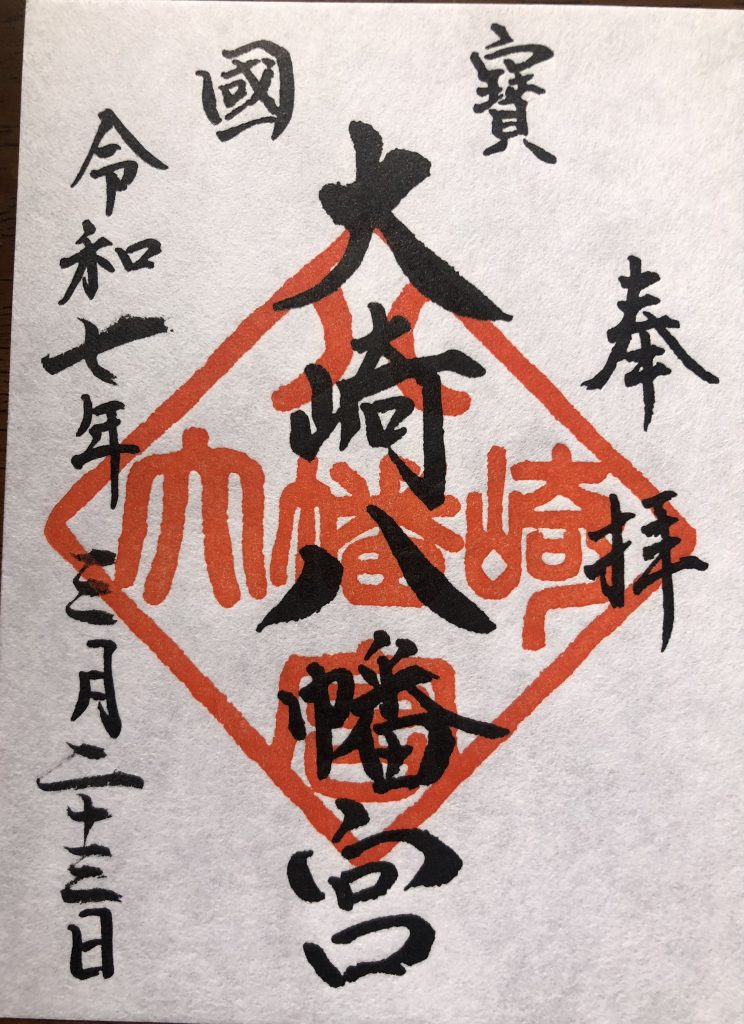 國寶
奉拝
大崎八幡宮
令和七年三月二十三日
大崎八幡宮